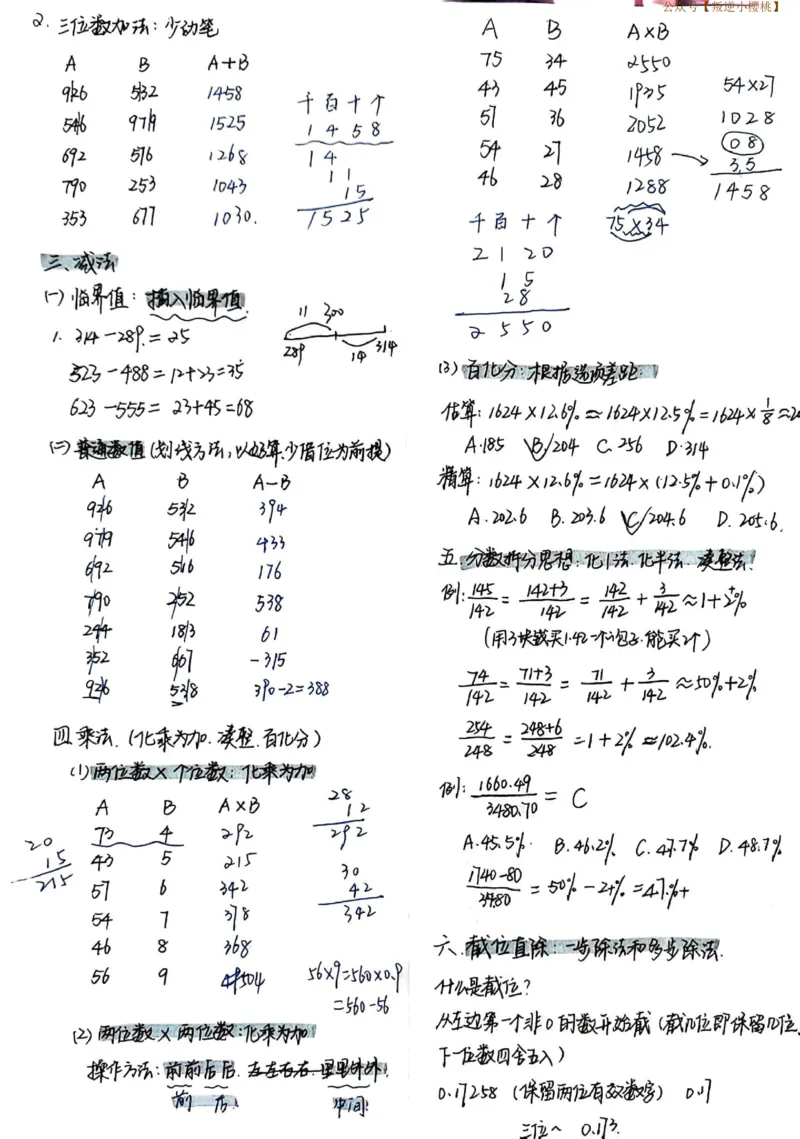 2. 三位数加法：少动笔
A B A+B
926 532 1458
546 979 1525
692 576 1268
790 253 1043
353 677 1030.
千 百 十 个
1 4 5 8
1 4
1 1
1 5
1 5 2 5
三、减法
(一) 临界值：插入临界值
1. 314-289=25
523-488=12+23=35
623-555=23+45=68
11 300
289 14 314
(二) 普通数值(划线方法，以好算、少借位为前提)
A B A-B
926 532 394
979 546 433
692 516 176
790 252 538
244 183 61
352 667 -315
926 538 390-2=388
四 乘法.(化乘为加.凑整.百化分)
(1) 两位数×个位数：化乘为加
A B A×B
73 4 292
43 5 215
57 6 342
54 7 378
46 8 368
56 9 504
28
12
292
20
15
215
30
42
342
56×9=560×0.9
=560-56
(2) 两位数×两位数：化乘为加
操作方法：前前后后.左左右右.里里外外.
前 后. 中间.
公众号【叛逆小樱桃】
A B A×B
75 34 2550
43 45 1935
57 36 2052
54 27 1458
46 28 1288
54×27
1028
08
35
1458
千 百 十 个
2 1 20
1 5
2 8
2 5 5 0
75×34
(3) 百化分：根据选项差距.
估算：1624×12.6%≈1624×12.5%=1624×1/8≈20
A.185 B.204 C.256 D.314
精算：1624×12.6%=1624×(12.5%+0.1%)
A.202.6 B.203.6 C.204.6 D.205.6.
五.分数拆分思想：化1法.化半法.凑整法.
例：145/142=142+3/142=142/142+3/142≈1+2%+
(用3块钱买1.42一个包子.能买2个)
74/142=71+3/142=71/142+3/142≈50%+2%
254/248=248+6/248=1+2%≈102.4%.
例：1660.49/3480.70= C
A.45.5%. B.46.2% C.47.7% D.48.7%
1740-80/3480=50%-2+%=47%+
六.截位直除：一步除法和多步除法.
什么是截位？
从左边第一个非0的数开始截(截几位即保留几位，
下一位数四舍五入)
0.17258 (保留两位有效数字) 0.17
三位～ 0.173.